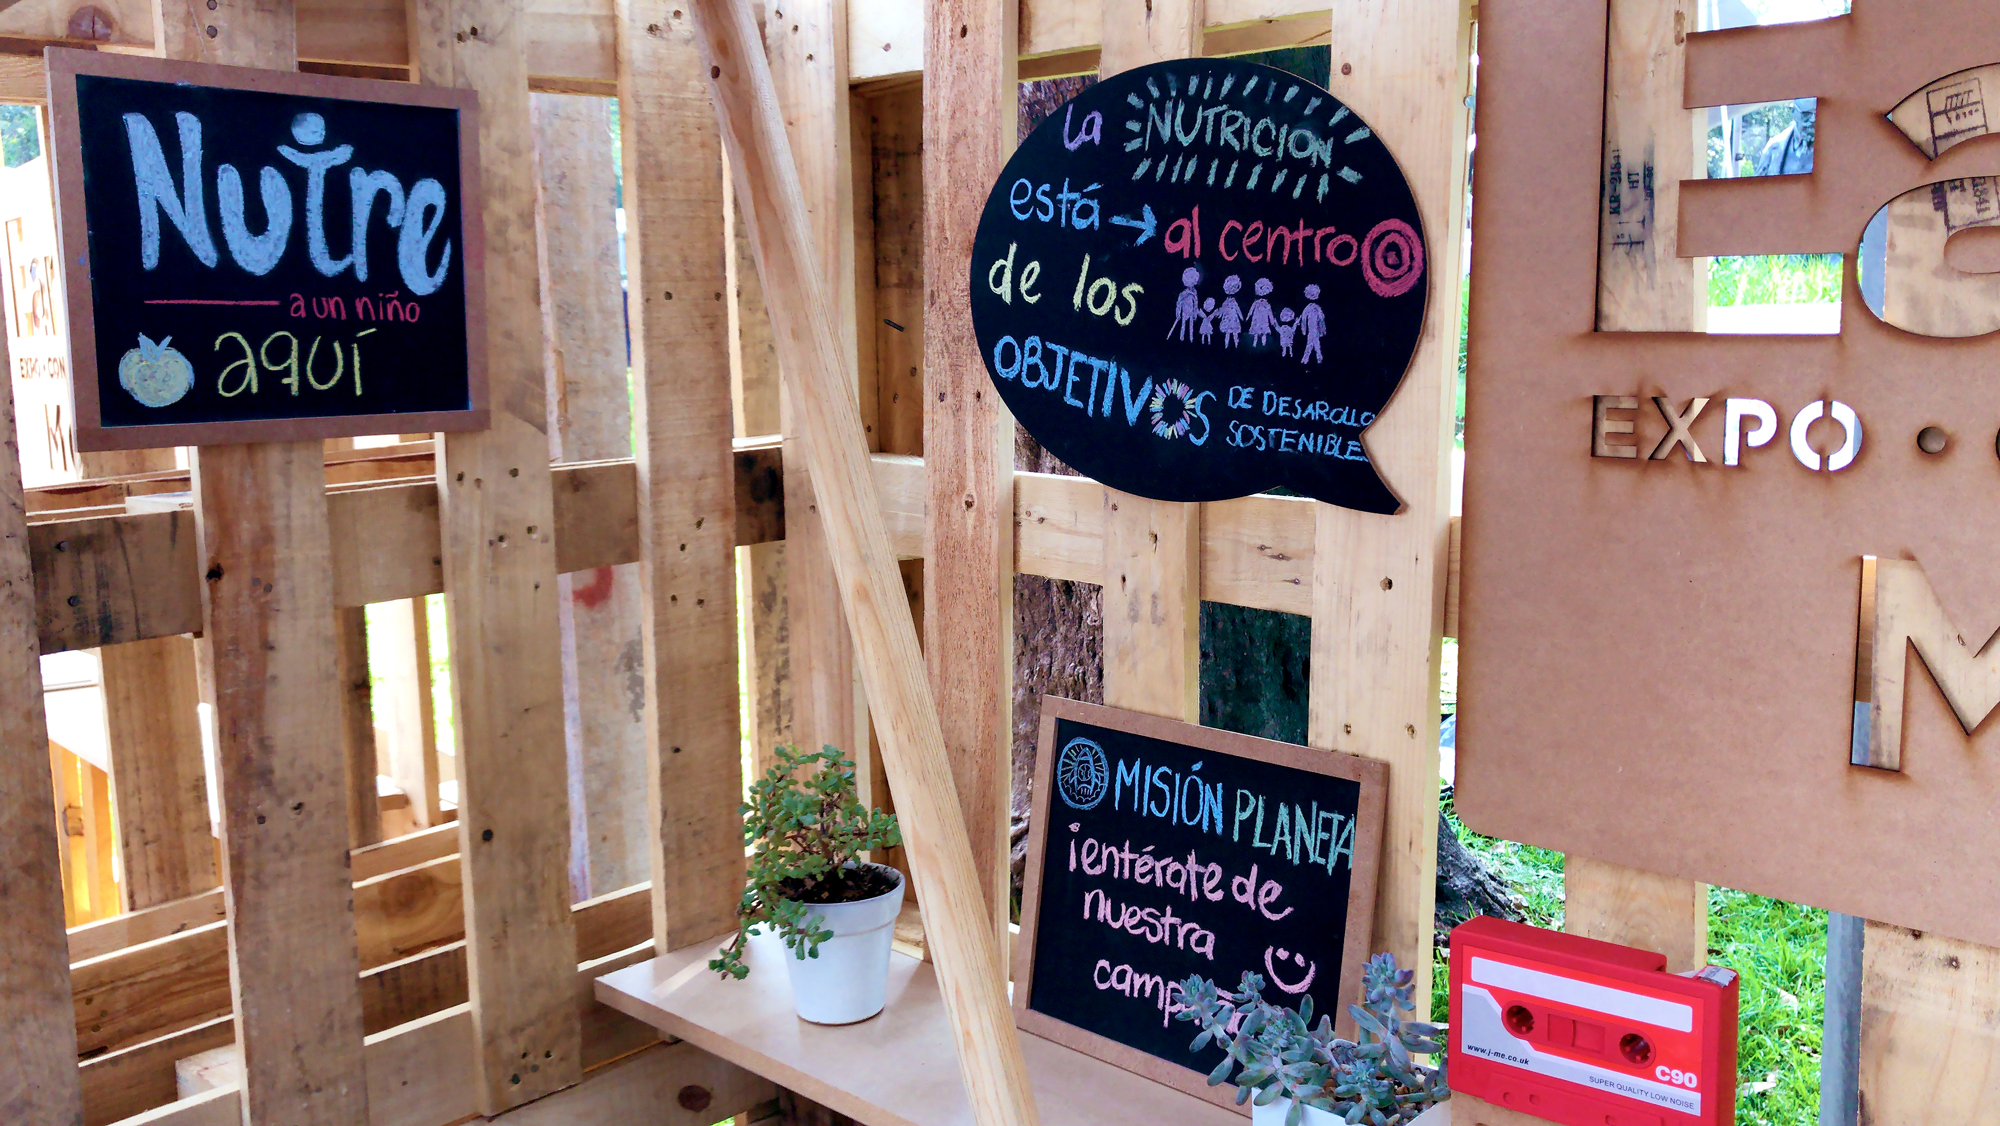 Nutre
a un niño
aquí
la NUTRICIÓN
está → al centro
de los
OBJETIVOS
DE DESAROLLO
SOSTENIBLE
MISIÓN PLANETA
¡entérate de
nuestra
EXPO ·
www.j-me.co.uk
C90
SUPER QUALITY LOW NOISE
EXPO · CON